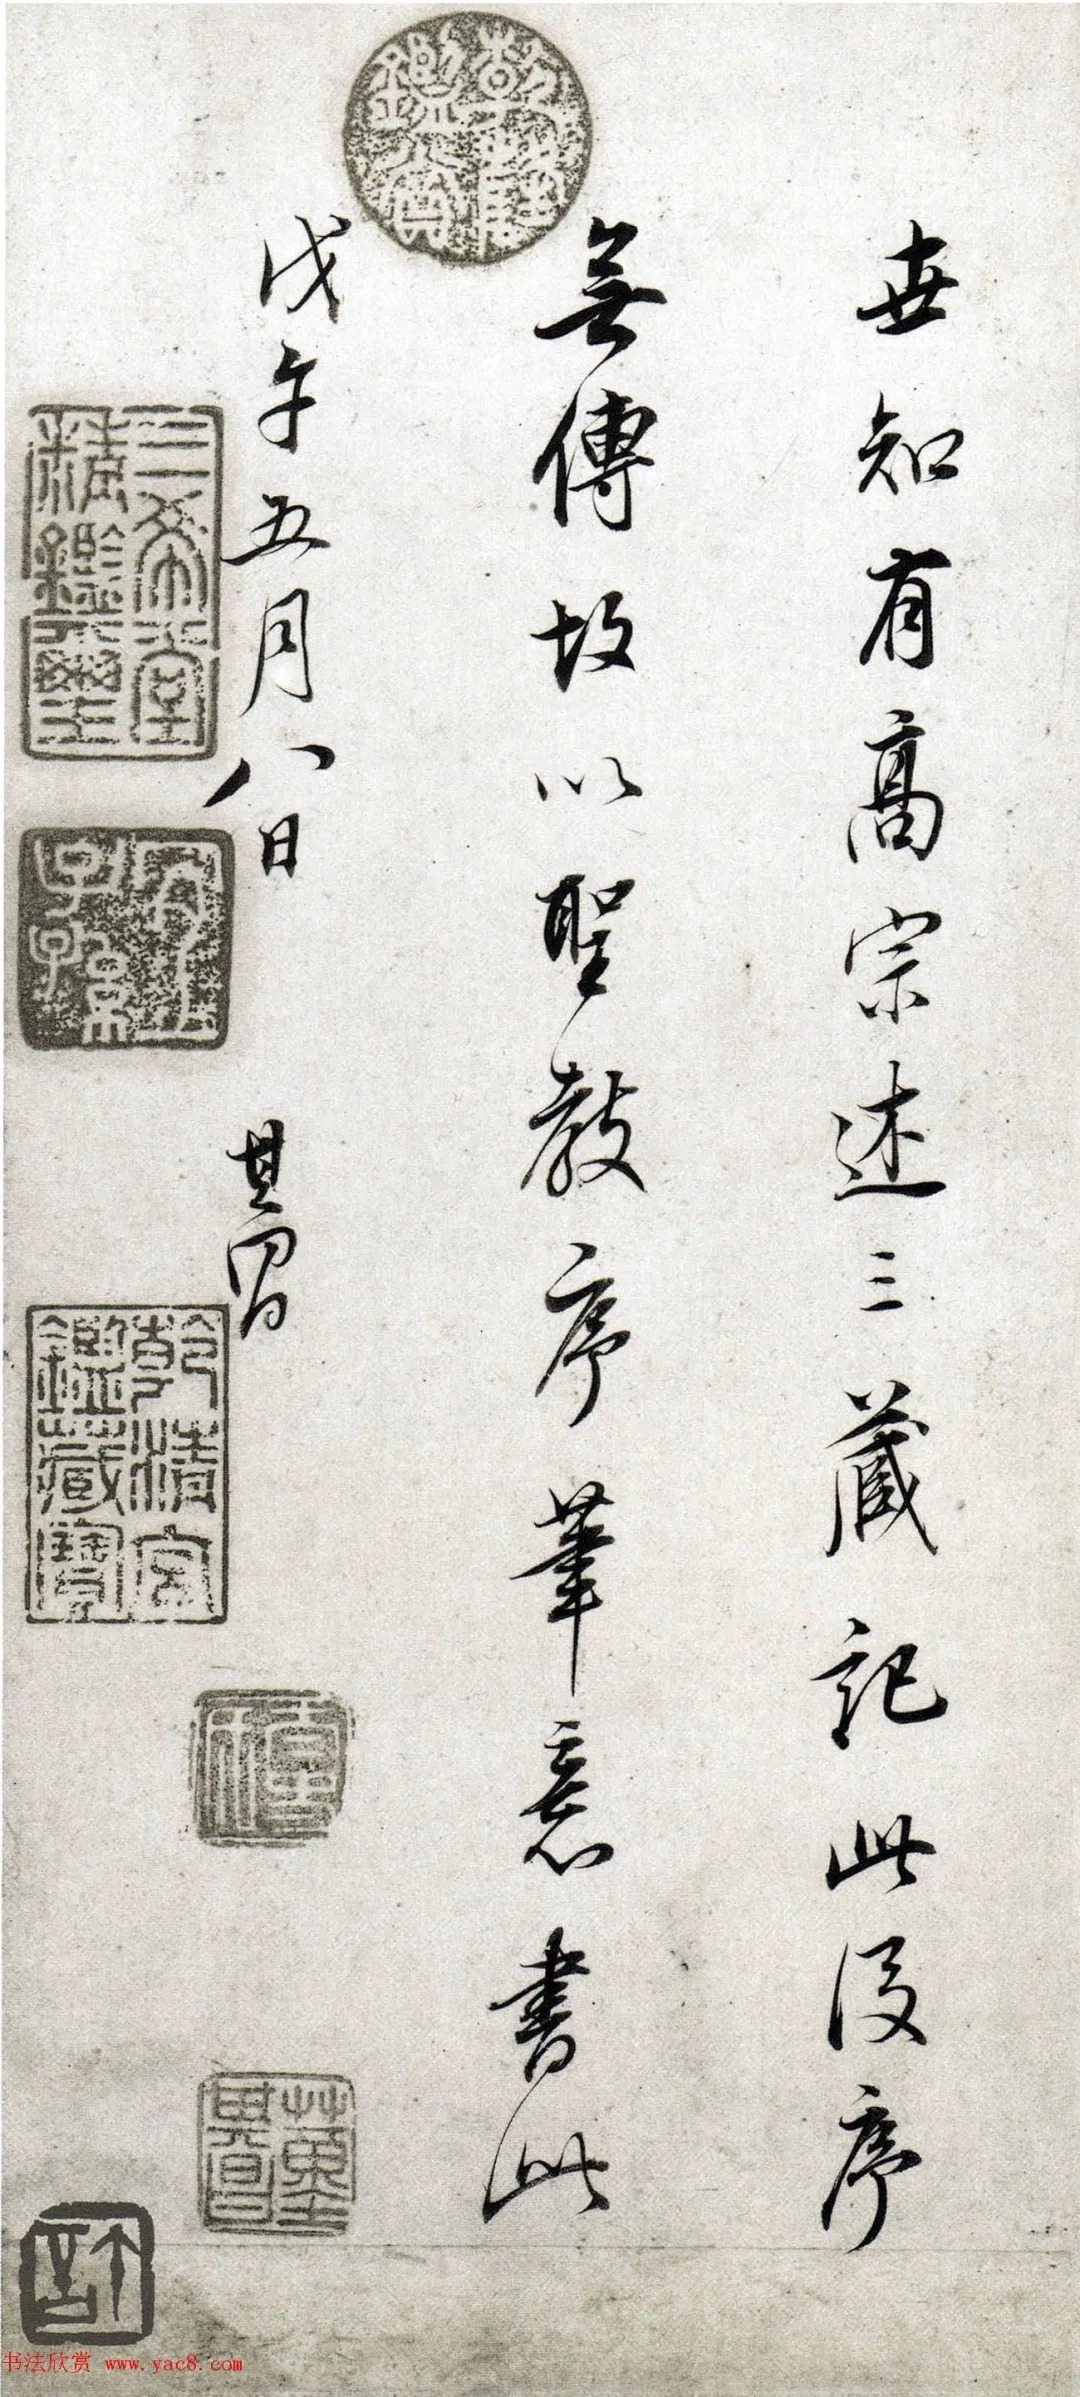 世知有高宗述三藏記此後序
乾隆鑑賞
無傳故以聖教序筆意書此
戊午五月八日
其昌
三希堂精鑑璽
宜子孫
乾清宮鑑藏寶
董其昌
书法欣赏 www.yac8.com